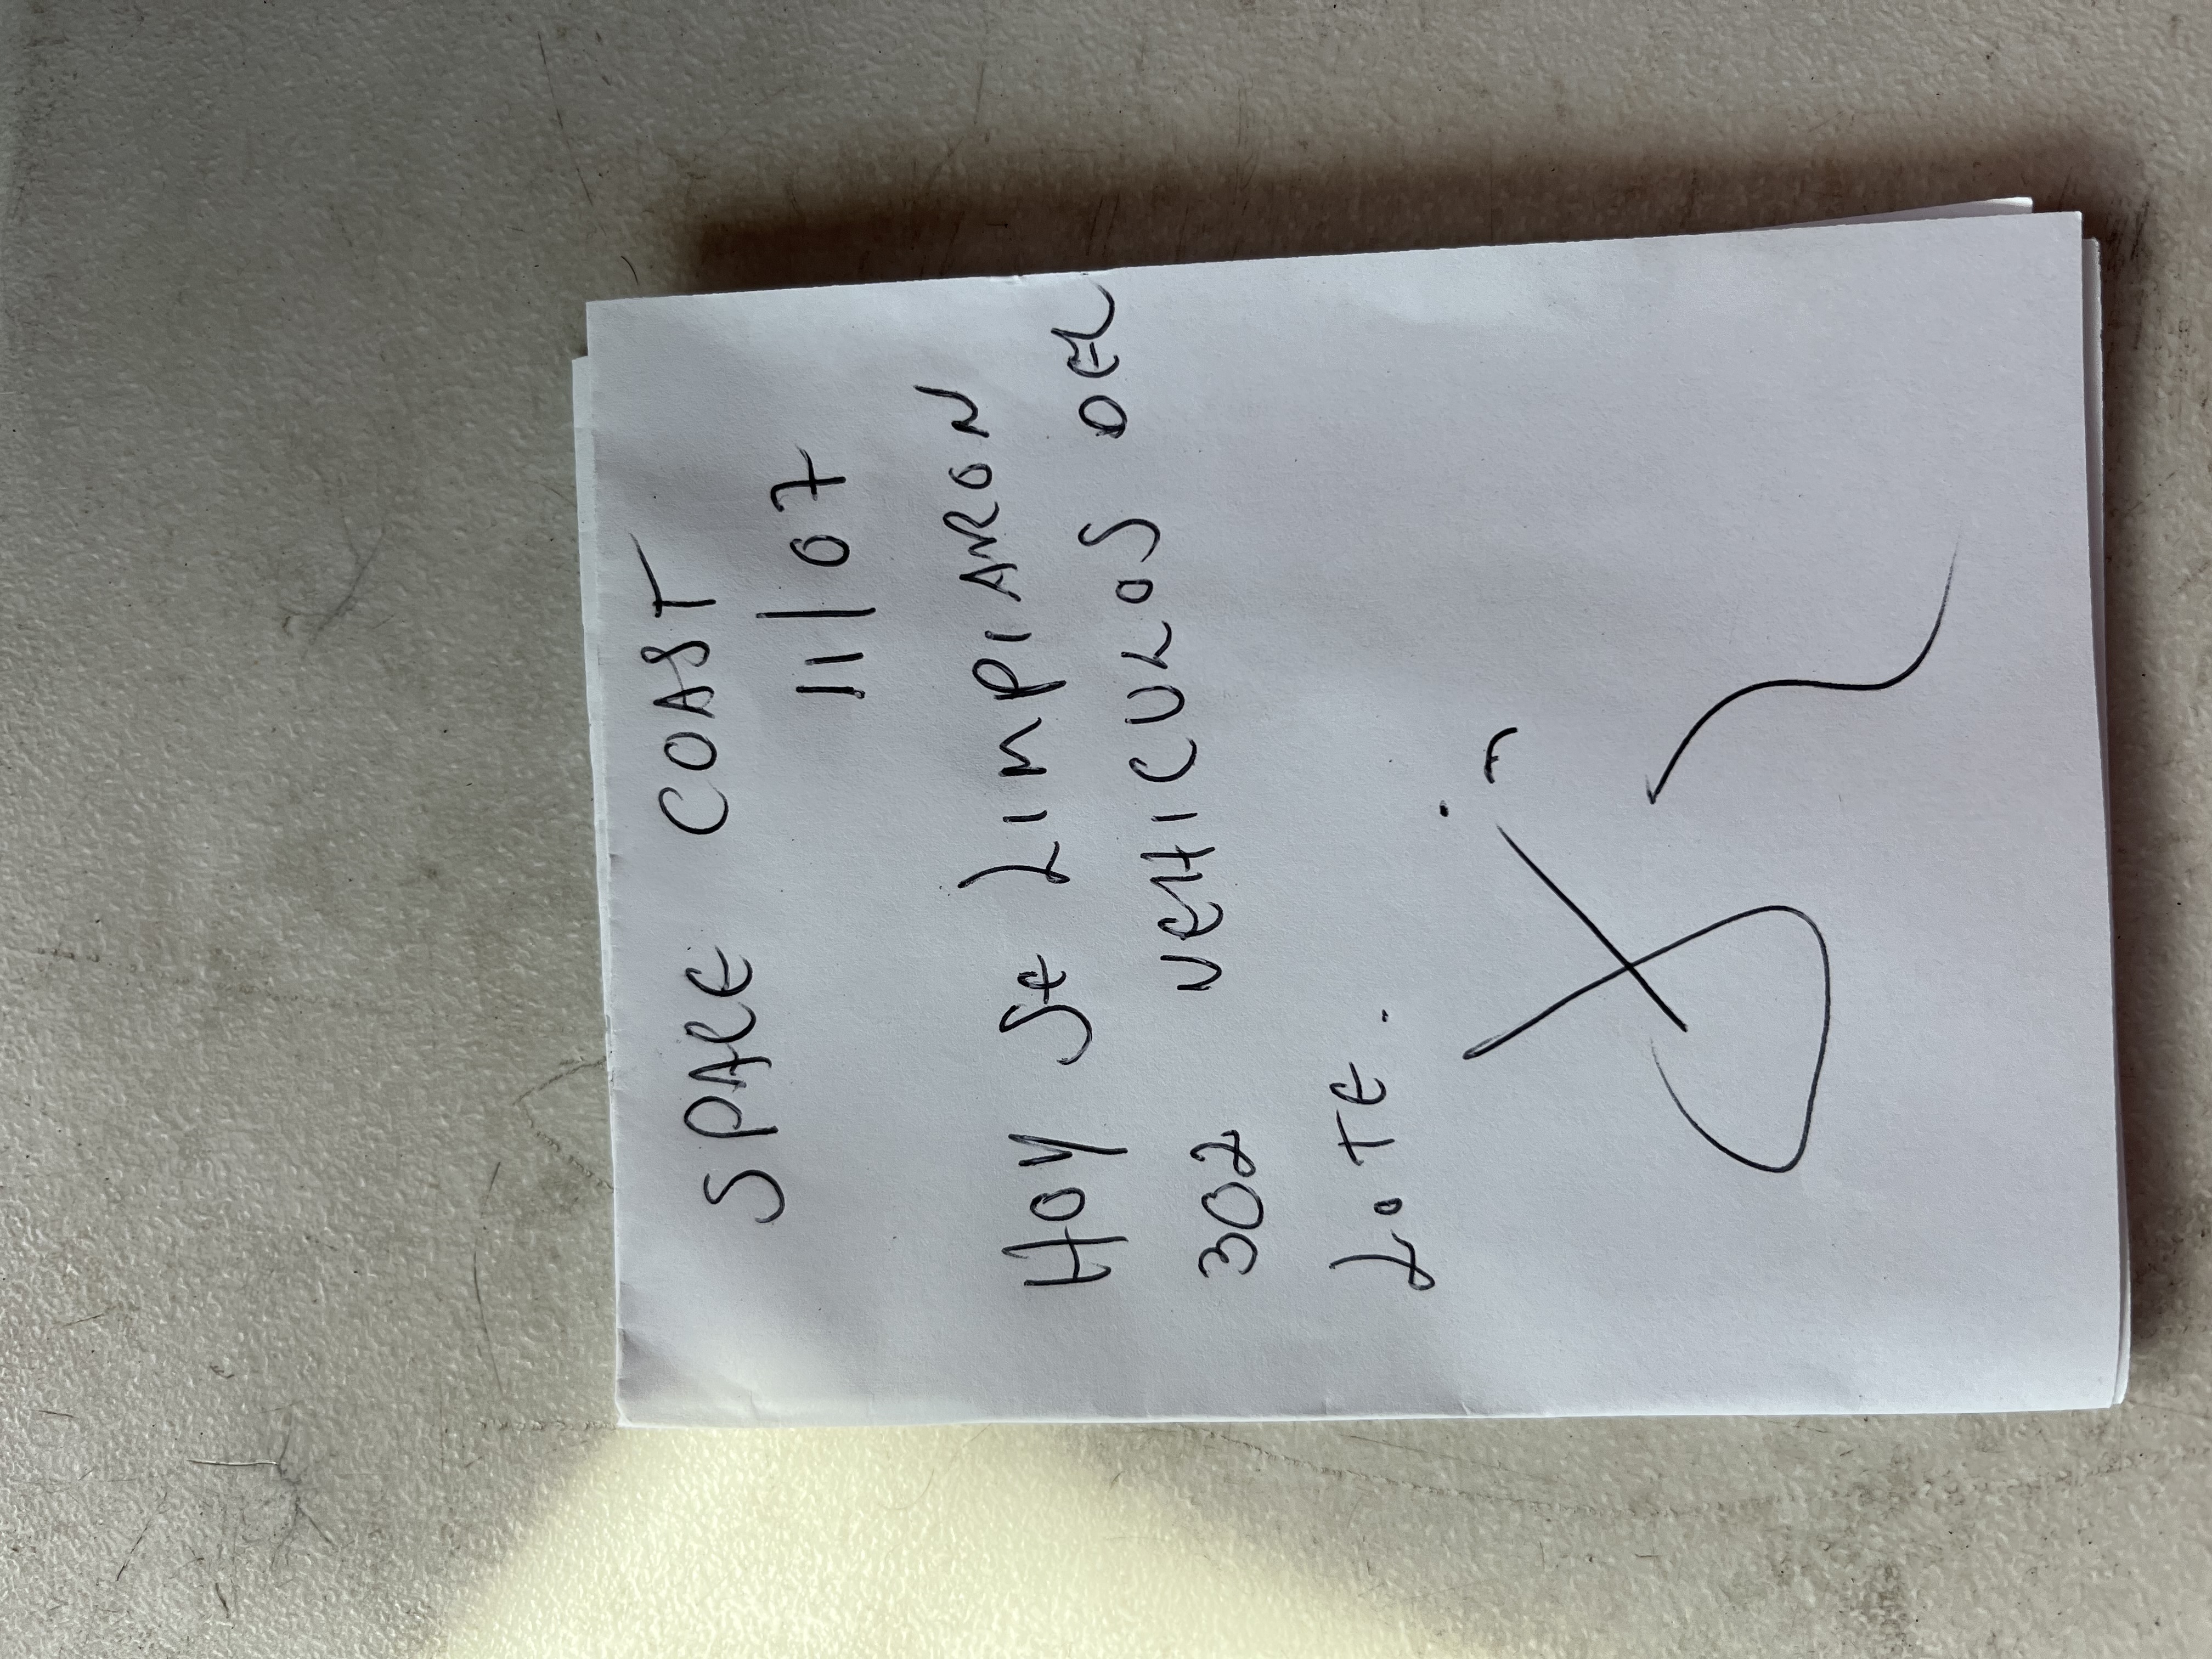 SPACE COAST
11/07
HOY SE LIMPIARON
302 VEHICULOS DEL
LOTE.